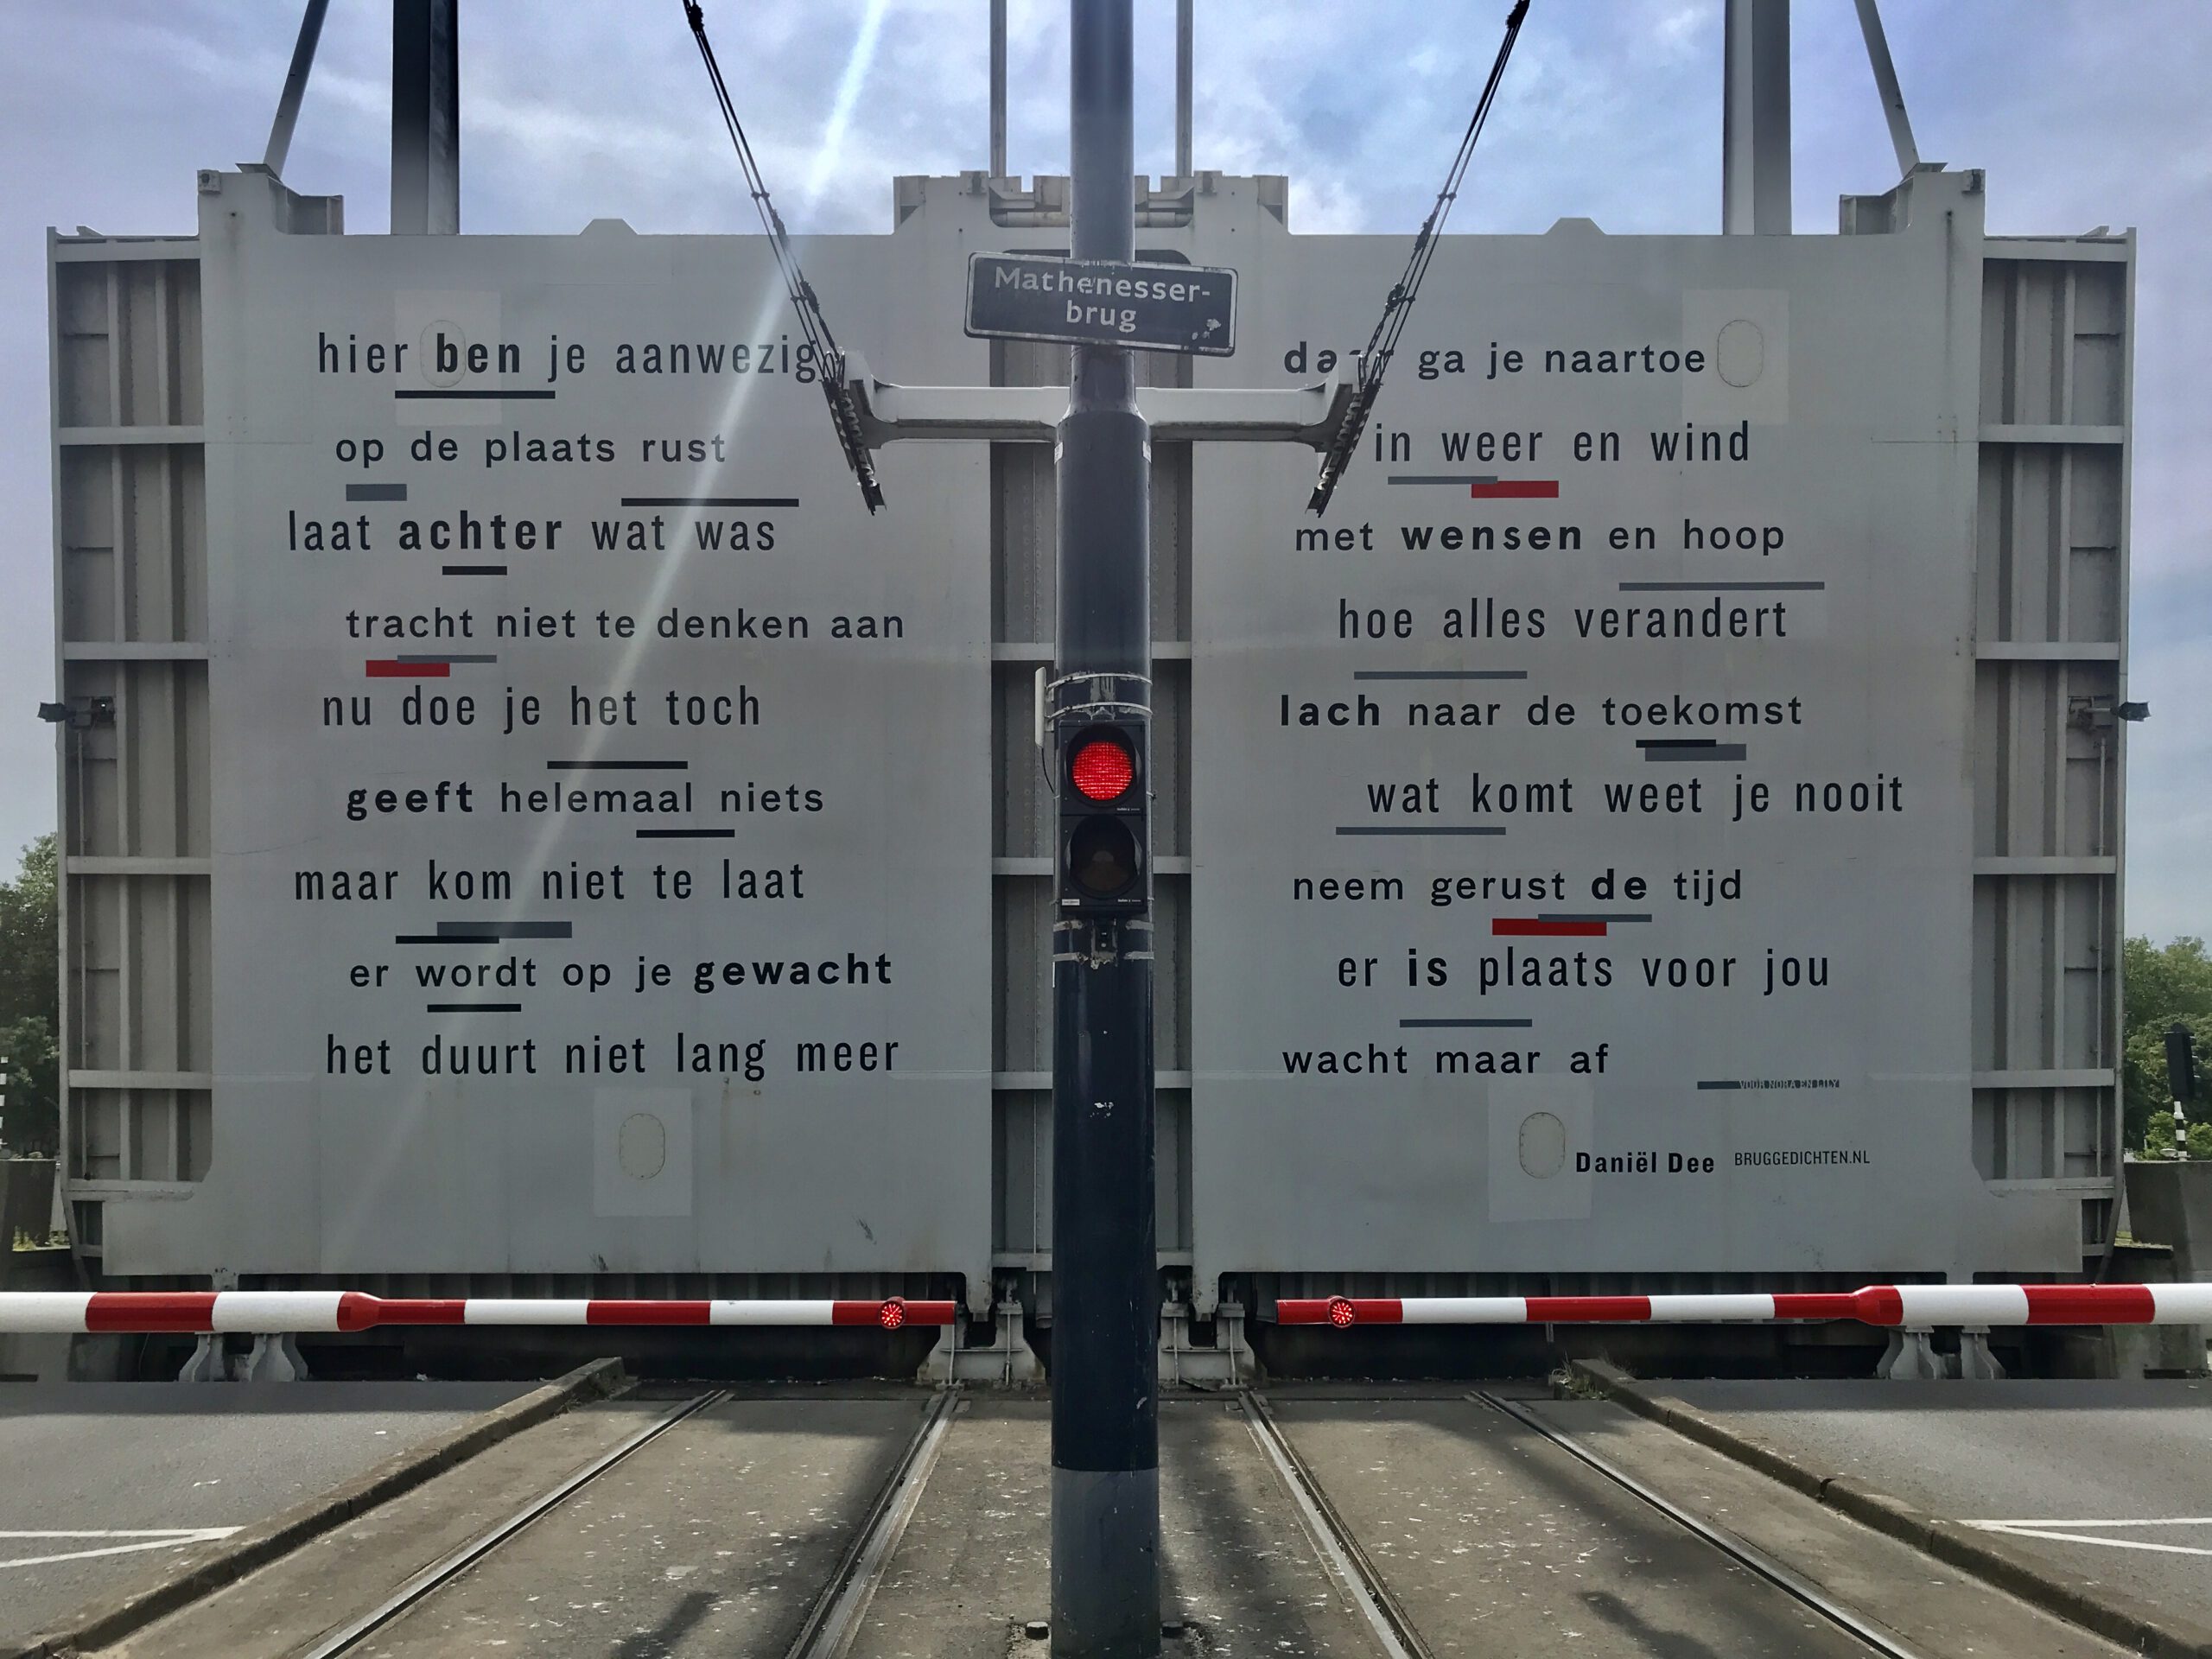 Mathenesser-
brug
hier ben je aanwezig
op de plaats rust
laat achter wat was
tracht niet te denken aan
nu doe je het toch
geeft helemaal niets
maar kom niet te laat
er wordt op je gewacht
het duurt niet lang meer
ga je naartoe
in weer en wind
met wensen en hoop
hoe alles verandert
lach naar de toekomst
wat komt weet je nooit
neem gerust de tijd
er is plaats voor jou
wacht maar af
VOOR NORA EN LILY
Daniël Dee BRUGGEDICHTEN.NL